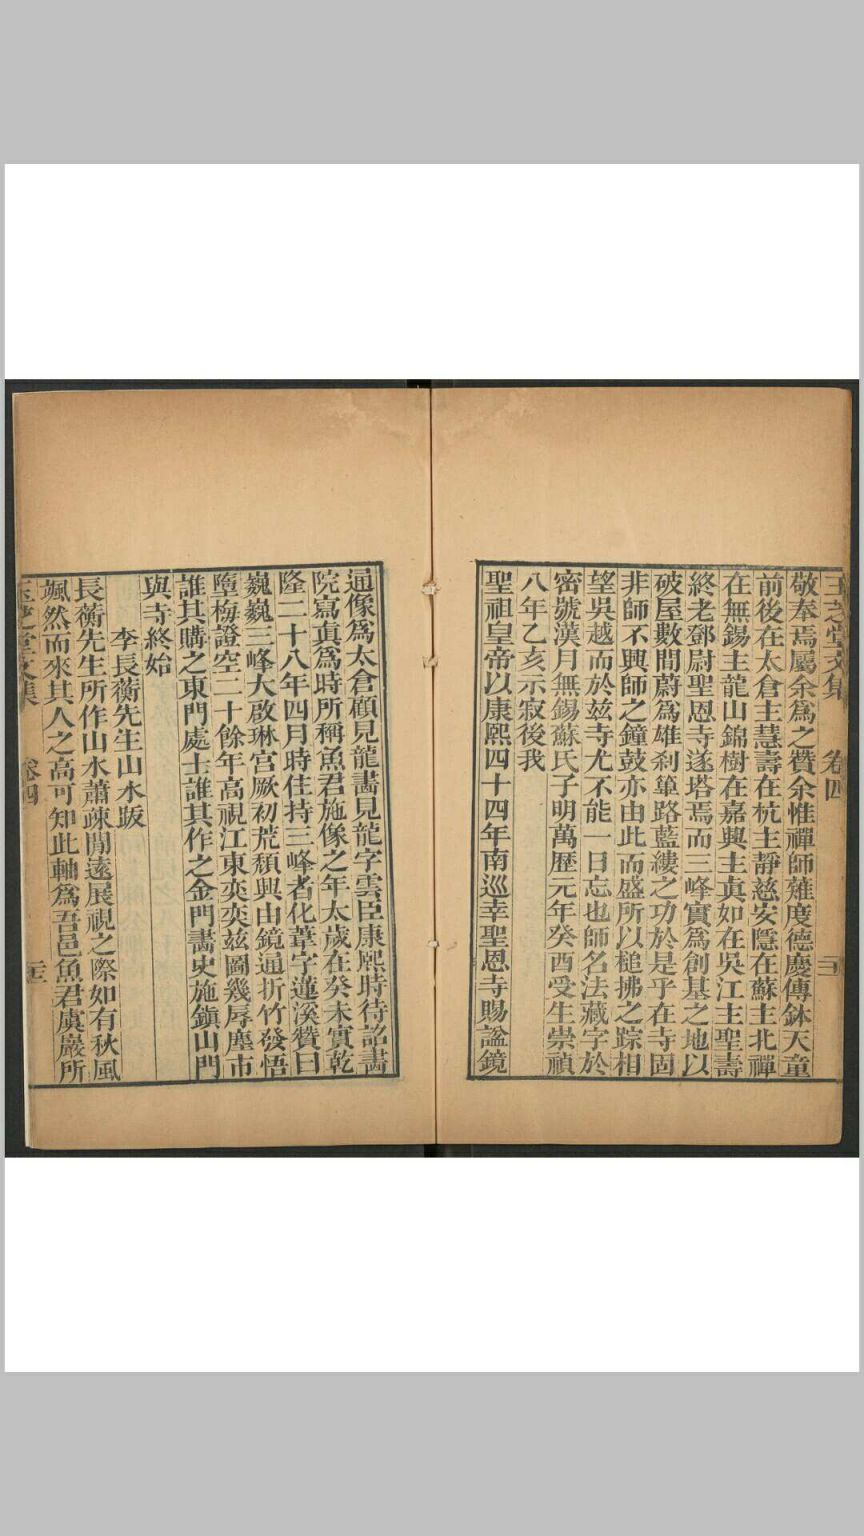 玉芝堂文集 卷四
敬奉焉屬余爲之贊余惟禪師薙度德慶傳鉢天童
前後在太倉主慧壽在杭主靜慈安隱在蘇主北禪
在無錫主龍山錦樹在嘉興主眞如在吳江主聖壽
終老鄧尉聖恩寺遂塔焉而三峰實爲創基之地以
破屋數間蔚爲雄刹篳路藍縷之功於是乎在寺固
非師不興師之鐘鼓亦由此而盛所以槌拂之踪相
望吳越而於兹寺尤不能一日忘也師名法藏字於
密號漢月無錫蘇氏子明萬歷元年癸酉受生崇禎
八年乙亥示寂後我
聖祖皇帝以康熙四十四年南巡幸聖恩寺賜謚鏡
通像爲太倉顧見龍畵見龍字雲臣康熙時待詔畵
院寫眞爲時所稱魚君施像之年太歲在癸未實乾
隆二十八年四月時住持三峰者化葦字蓮溪贊曰
巍巍三峰大啟琳宫厥初荒頹興由鏡通折竹發悟
墮梅證空二十餘年高視江東奕奕兹圖幾辱塵市
誰其購之東門處士誰其作之金門畵史施鎭山門
與寺終始
李長蘅先生山水跋
長蘅先生所作山水蕭疎閒遠展視之際如有秋風
颯然而來其人之高可知此軸爲吾邑魚君虞巖所
玉芝堂文集 卷四